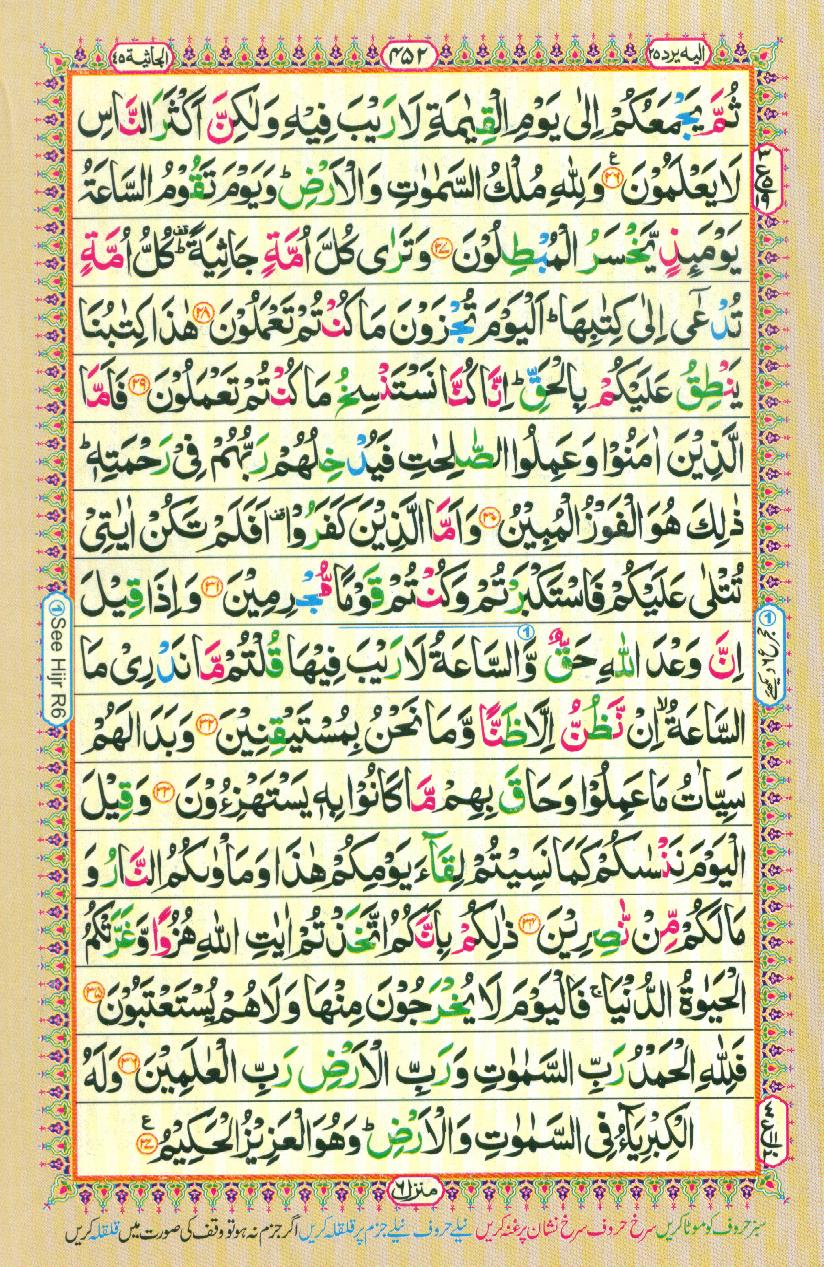 الیه یرد ۲۵
۴۵۲
الجاثیة ۴۵
ثُمَّ یَجْمَعُكُمْ اِلٰی یَوْمِ الْقِیٰمَةِ لَا رَیْبَ فِیْهِ وَلٰكِنَّ اَكْثَرَ النَّاسِ
لَا یَعْلَمُوْنَ ﴿۲۶﴾ ع وَلِلّٰهِ مُلْكُ السَّمٰوٰتِ وَالْاَرْضِ ؕ وَیَوْمَ تَقُوْمُ السَّاعَةُ
یَوْمَىِٕذٍ یَّخْسَرُ الْمُبْطِلُوْنَ ﴿۲۷﴾ وَتَرٰی كُلَّ اُمَّةٍ جَاثِیَةً ؕ كُلُّ اُمَّةٍ
تُدْعٰۤی اِلٰی كِتٰبِهَا ؕ اَلْیَوْمَ تُجْزَوْنَ مَا كُنْتُمْ تَعْمَلُوْنَ ﴿۲۸﴾ هٰذَا كِتٰبُنَا
یَنْطِقُ عَلَیْكُمْ بِالْحَقِّ ؕ اِنَّا كُنَّا نَسْتَنْسِخُ مَا كُنْتُمْ تَعْمَلُوْنَ ﴿۲۹﴾ فَاَمَّا
الَّذِیْنَ اٰمَنُوْا وَعَمِلُوا الصّٰلِحٰتِ فَیُدْخِلُهُمْ رَبُّهُمْ فِیْ رَحْمَتِهٖ ؕ
ذٰلِكَ هُوَ الْفَوْزُ الْمُبِیْنُ ﴿۳۰﴾ وَاَمَّا الَّذِیْنَ كَفَرُوْا قف اَفَلَمْ تَكُنْ اٰیٰتِیْ
تُتْلٰی عَلَیْكُمْ فَاسْتَكْبَرْتُمْ وَكُنْتُمْ قَوْمًا مُّجْرِمِیْنَ ﴿۳۱﴾ وَاِذَا قِیْلَ
اِنَّ وَعْدَ اللّٰهِ حَقٌّ وَّالسَّاعَةُ لَا رَیْبَ فِیْهَا قُلْتُمْ مَّا نَدْرِیْ مَا
السَّاعَةُ ۙ اِنْ نَّظُنُّ اِلَّا ظَنًّا وَّمَا نَحْنُ بِمُسْتَیْقِنِیْنَ ﴿۳۲﴾ وَبَدَا لَهُمْ
سَیِّاٰتُ مَا عَمِلُوْا وَحَاقَ بِهِمْ مَّا كَانُوْا بِهٖ یَسْتَهْزِءُوْنَ ﴿۳۳﴾ وَقِیْلَ
الْیَوْمَ نَنْسٰىكُمْ كَمَا نَسِیْتُمْ لِقَآءَ یَوْمِكُمْ هٰذَا وَمَاْوٰىكُمُ النَّارُ وَ
مَا لَكُمْ مِّنْ نّٰصِرِیْنَ ﴿۳۴﴾ ذٰلِكُمْ بِاَنَّكُمُ اتَّخَذْتُمْ اٰیٰتِ اللّٰهِ هُزُوًا وَّغَرَّتْكُمُ
الْحَیٰوةُ الدُّنْیَا ۚ فَالْیَوْمَ لَا یُخْرَجُوْنَ مِنْهَا وَلَا هُمْ یُسْتَعْتَبُوْنَ ﴿۳۵﴾
فَلِلّٰهِ الْحَمْدُ رَبِّ السَّمٰوٰتِ وَرَبِّ الْاَرْضِ رَبِّ الْعٰلَمِیْنَ ﴿۳۶﴾ وَلَهُ
الْكِبْرِیَآءُ فِی السَّمٰوٰتِ وَالْاَرْضِ ؕ وَهُوَ الْعَزِیْزُ الْحَكِیْمُ ﴿۳۷﴾ ع
① See Hijr R6
منزل ۶
سبز حروف کو موٹا کریں سرخ حروف سرخ نشان پر غنہ کریں نیلے حروف نیلے جزم پر قلقلہ کریں اگر جزم نہ ہو تو وقف کی صورت میں قلقلہ کریں